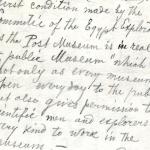 first condition made by the
Committee of the Egypt Explora
is the Post Museum is in real
public Museum which
not only as every museum
open every day to the public
but also gives permission to
scientific men and explorers
every kind to work in the
Museum –